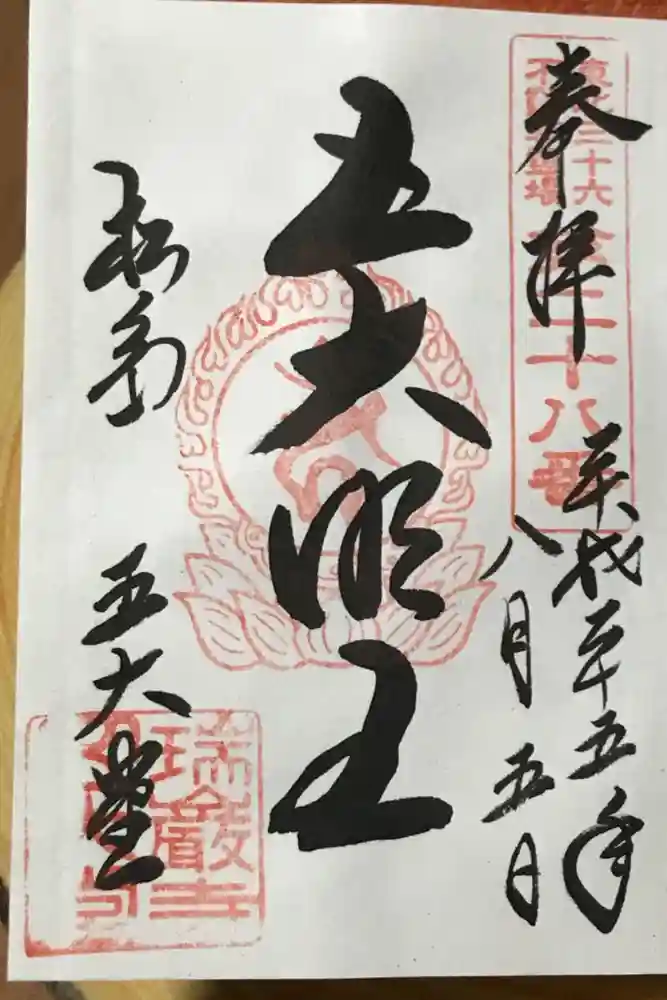 奉拝
東北三十六
不動尊霊場
第二十八番
平成二十五年
八月五日
五大明王
松島
五大堂
瑞巖寺